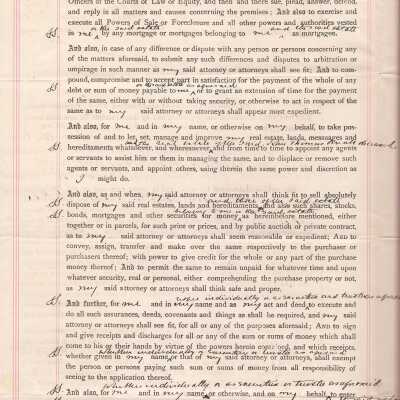 Officers of the Courts of Law or Equity, and then and there sue, plead, answer, defend,
and reply in all matters and causes concerning the premises; And also to exercise and
execute all Powers of Sale or Foreclosure and all other powers and authorities vested
in me by any mortgage or mortgages belonging to me as mortgagees.
And also, in case of any difference or dispute with any person or persons concerning
of the matters aforesaid, to submit any such differences and disputes to arbitration or
umpirage in such manner as my said attorney or attorneys shall see fit; And to com-
pound, compromise and to accept part in satisfaction for the payment of the whole of any
debt or sum of money payable to me or to grant an extension of time for the payment
of the same, either with or without taking security, or otherwise to act in respect of the
same as to my said attorney or attorneys shall appear most expedient.
And also, for me and in my name, or otherwise on my behalf, to take pos-
session of and to let, set, manage and improve my real estate, lands, messuages and
hereditaments whatever, and wheresoever, and from time to time to appoint any agents
or servants to assist him or them in managing the same, and to displace or remove such
agents or servants, and appoint others, using therein the same power and discretion as
I might do.
And also, as and when, my said attorney or attorneys shall think fit to sell absolutely
and those of the said estate
dispose of my said real estates, lands and hereditaments, and also such shares, stocks,
bonds, mortgages and other securities for money as hereinbefore mentioned, either
together or in parcels, for such price or prices, and by public auction or private contract,
as to my said attorney or attorneys shall seem reasonable or expedient; And to
convey, assign, transfer and make over the same respectively to the purchaser or
purchasers thereof; with power to give credit for the whole or any part of the purchase
money thereof; And to permit the same to remain unpaid for whatever time and upon
whatever security, real or personal, either comprehending the purchase property or not,
as my said attorney or attorneys shall think safe and proper.
And further, for me and in my name and as my act and deed, to execute and
do all such assurances, deeds, covenants and things as shall be required, and my said
attorney or attorneys shall see fit, for all or any of the purposes aforesaid; And to sign
and give receipts and discharges for all or any of the sum or sums of money which shall
come to his or their hands by virtue of the powers herein contained, and which receipts,
whether given in my name, or that of my said attorney or attorneys, shall exempt
the person or persons paying such sum or sums of money from all responsibility of
seeing to the application thereof.
whether individually or as executrix or trustee as aforesaid
And also, for me and in my name, or otherwise, and on my behalf, to enter